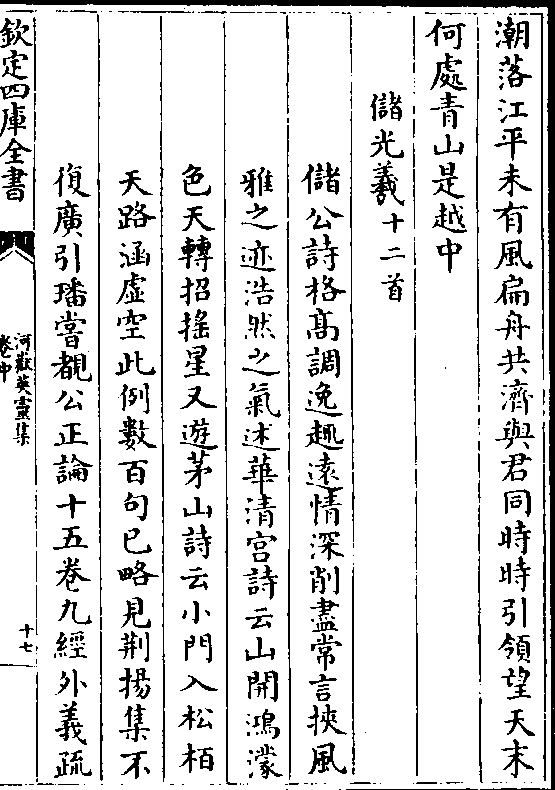 潮落江平未有風扁舟共濟與君同時時引領望天末
何處青山是越中
儲光羲十二首
儲公詩格髙調逸趣遠情深削盡常言挾風
雅之迹浩然之氣述華清宫詩云山開鴻濛
色天轉招揺星又遊茅山詩云小門入松柏
天路涵虚空此例數百句已略見荆揚集不
復廣引璠嘗覩公正論十五卷九經外義疏
欽定四庫全書
河嶽英靈集
卷中
十七